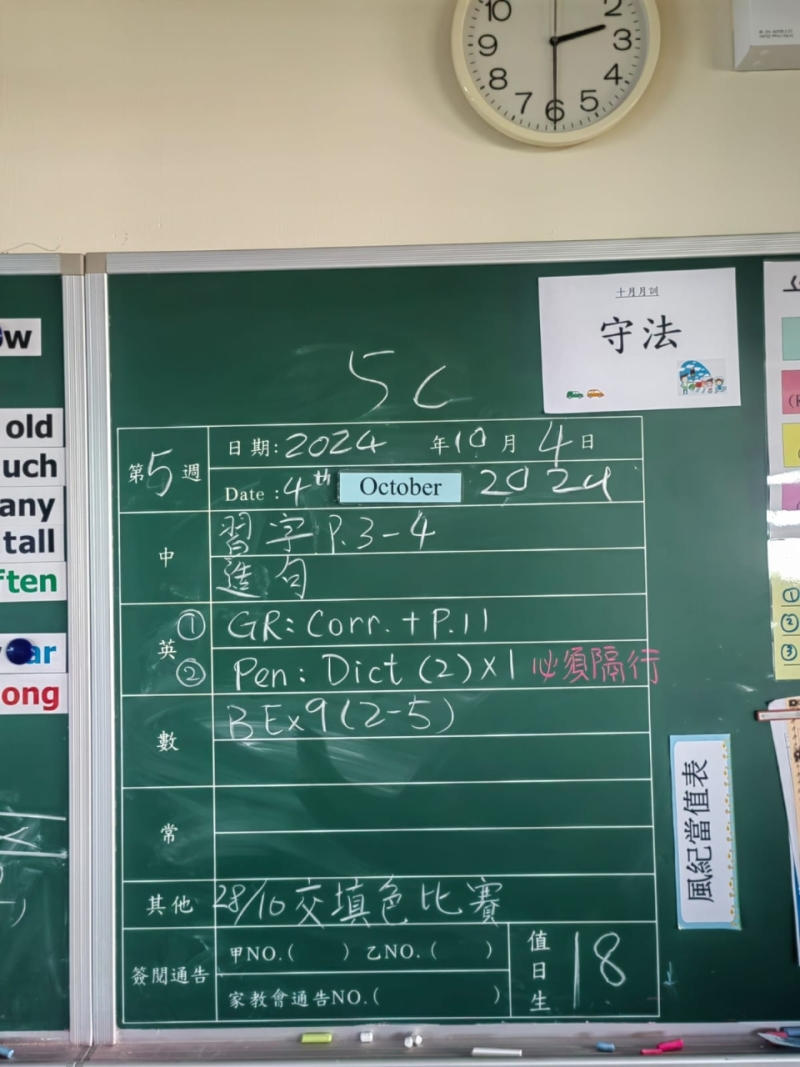 10
2
9
3
8
4
7
6
5
十月月訓
守法
5C
第5週
日期:2024 年10月4日
Date :4th October 2024
中
習字P.3-4
造句
英
① GR: Corr. + P.11
② Pen: Dict (2)×1 必須隔行
數
BEx9(2-5)
常
其他
28/10交填色比賽
簽閱通告
甲NO.( ) 乙NO.( )
家教會通告NO.( )
值日生
18
風紀當值表
ow
old
uch
any
tall
ften
ar
ong
①
②
③